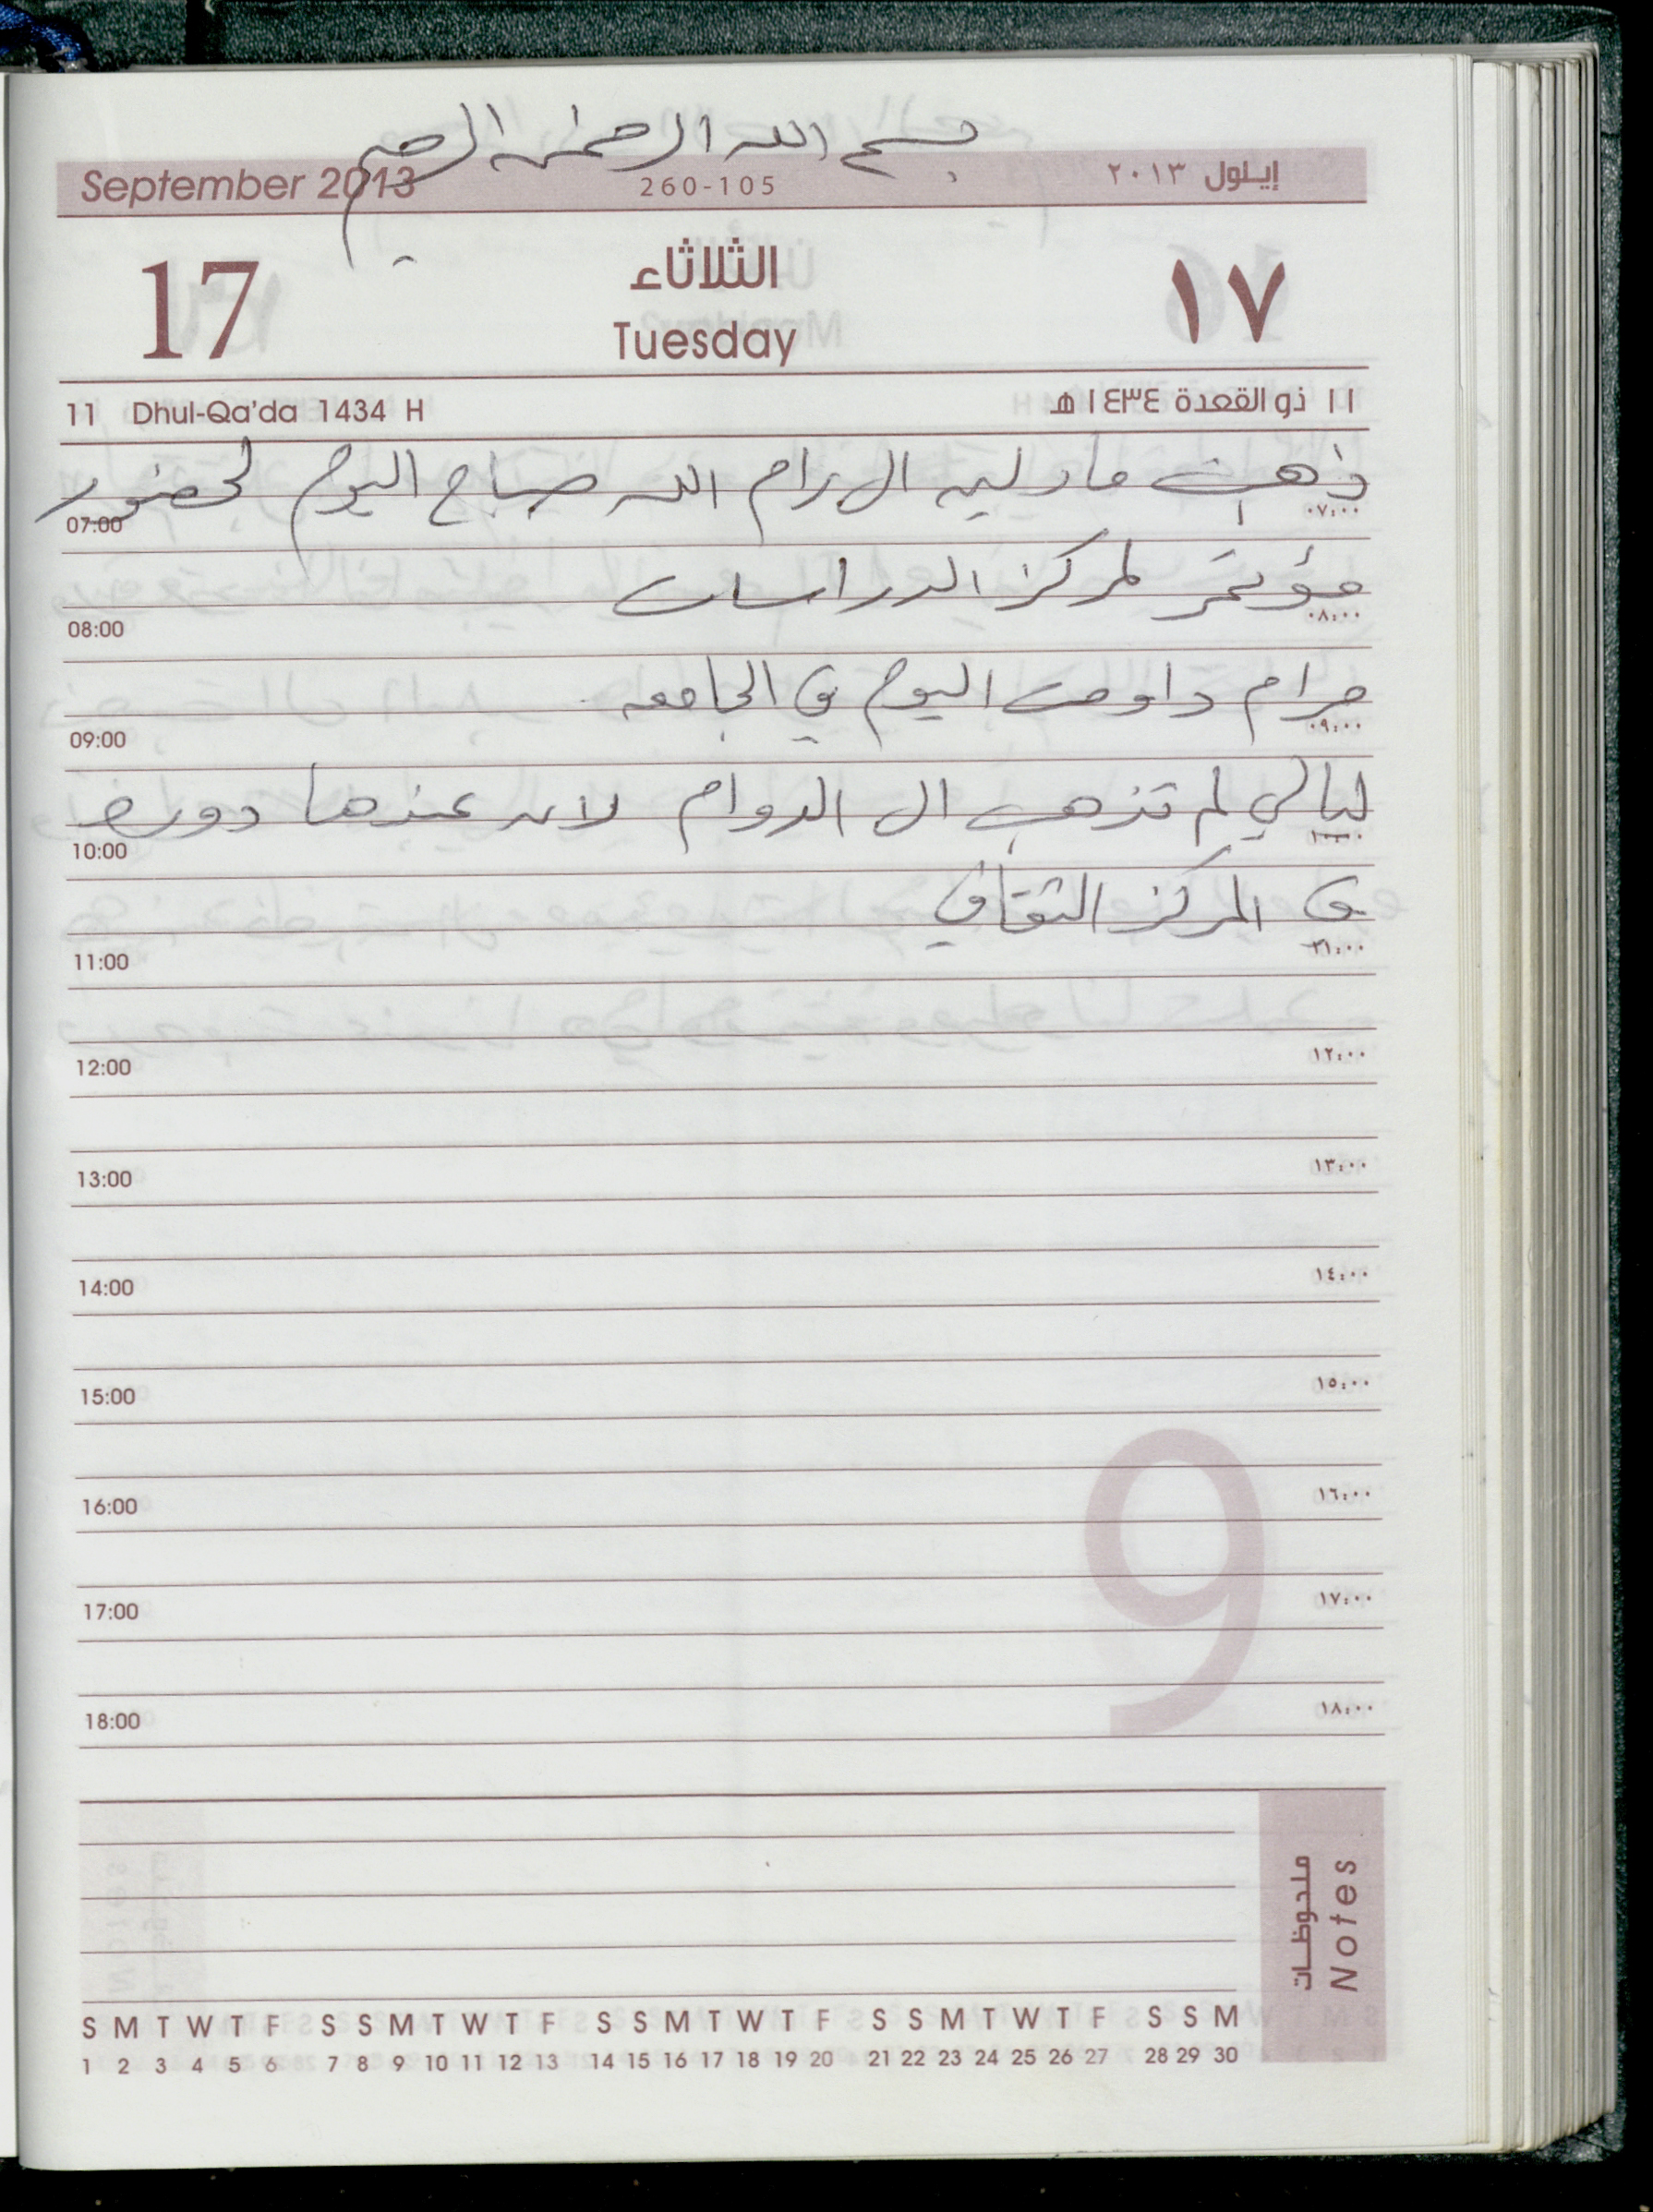 بسم الله الرحمن الرحيم
September 2013 260-105 إيلول ٢٠١٣
17 الثلاثاء ١٧
Tuesday
11 Dhul-Qa'da 1434 H ١١ ذو القعدة ١٤٣٤ هـ
ذهبت مادلين الى رام الله صباح اليوم لحضور
07:00 ٠٧:٠٠
مؤتمر لمركز الدراسات
08:00 ٠٨:٠٠
مرام داومت اليوم في الجامعه
09:00 ٠٩:٠٠
ليالي لم تذهب الى الدوام لانه عندها دوره
10:00 ١٠:٠٠
في المركز الثقافي
11:00 ١١:٠٠
12:00 ١٢:٠٠
13:00 ١٣:٠٠
14:00 ١٤:٠٠
15:00 ١٥:٠٠
16:00 ١٦:٠٠
17:00 ١٧:٠٠
18:00 ١٨:٠٠
9
ملحوظات
Notes
S M T W T F S S M T W T F S S M T W T F S S M T W T F S S M
1 2 3 4 5 6 7 8 9 10 11 12 13 14 15 16 17 18 19 20 21 22 23 24 25 26 27 28 29 30